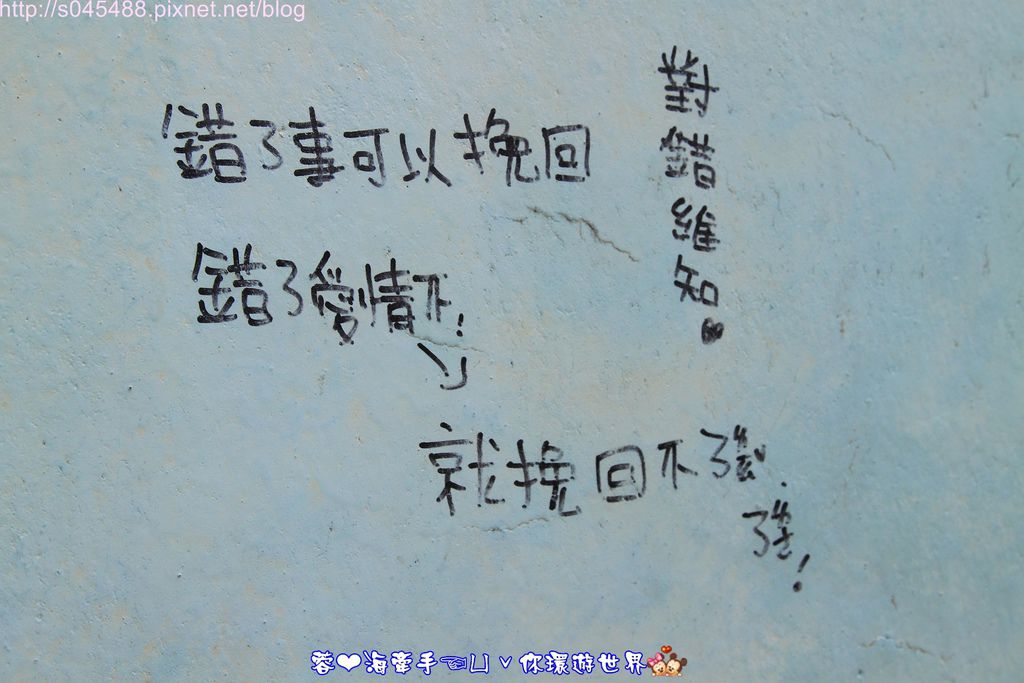 http://s045488.pixnet.net/blog
對錯維知。
錯了事可以挽回
錯了愛情不!
就挽回不了
了!
蓉❤海牽手☜凵ˇ你環遊世界